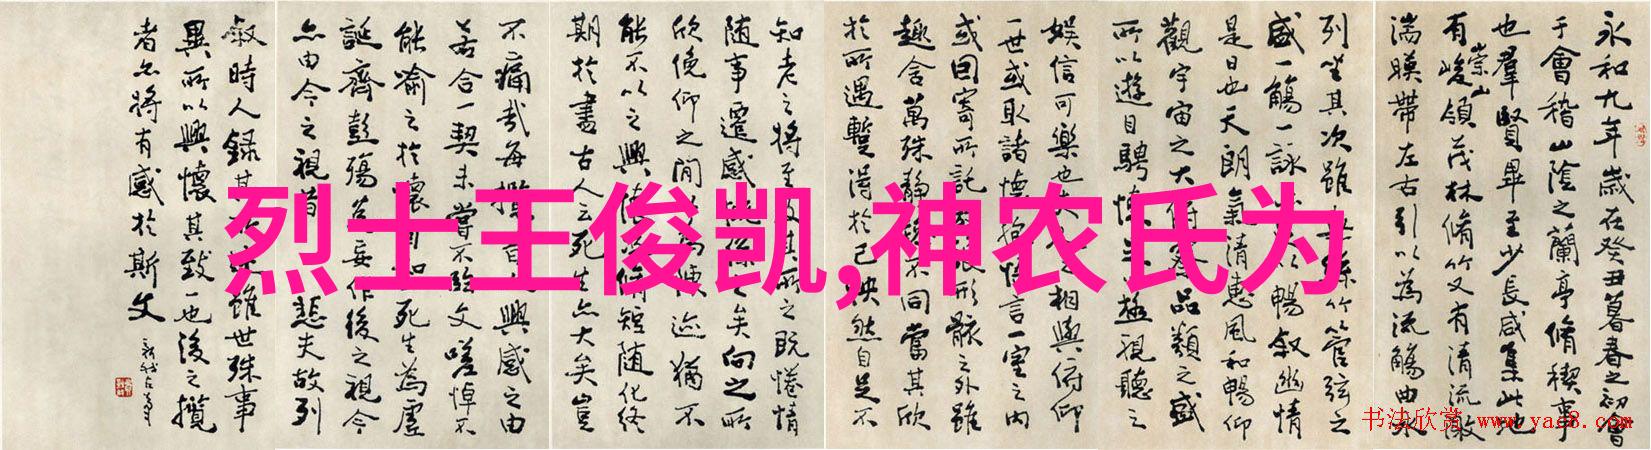 永和九年歲在癸丑暮春之初會
于會稽山陰之蘭亭脩稧事
也羣賢畢至少長咸集此地
有崇山峻領茂林脩竹又有清流激
湍暎帶左右引以為流觴曲水
列坐其次雖無絲竹管弦之
盛一觴一詠以暢敘幽情
是日也天朗氣清惠風和暢仰
觀宇宙之大俯察品類之盛
所以遊目騁懷足以極視聽之
娛信可樂也夫之相與俯仰
一世或取諸懷抱悟言一室之內
或因寄所託放浪形骸之外雖
趣舍萬殊靜躁不同當其欣
於所遇暫得於己快然自足不
知老之將至及其所之既惓情
随事遷感慨係之矣向之所
欣俛仰之間以為陳迹猶不
能不以之興懷況脩短随化終
期於盡古人云死生亦大矣豈
不痛哉每攬昔人興感之由
若合一契未嘗不臨文嗟悼不
能喻之於懷固知死生為虛
誕齊彭殤為妄作後之視今
亦由今之視昔悲夫故列
敘時人錄其所述雖世殊事
異所以興懷其致一也後之攬
者亦將有感於斯文
烈士王俊凯,神农氏为
书法欣赏 www.yac8.com